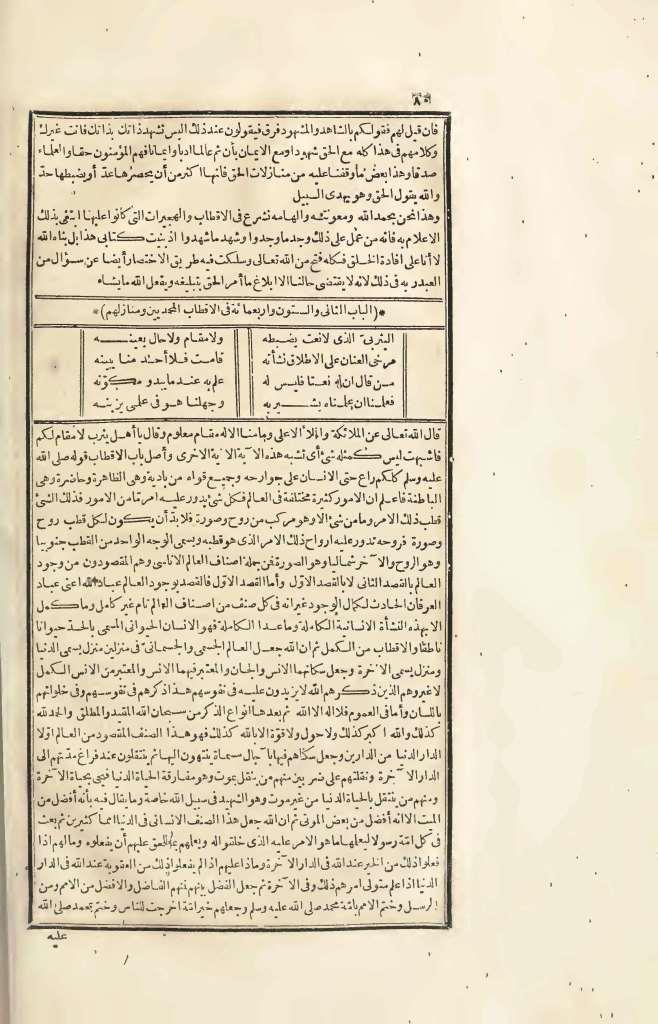 ٨٠
فان قيل لهم فقولكم بالشاهد والمشهود فرق فيقولون عند ذلك اليس تشهد ذاتك بذاتك فانت غيرك
وكلامهم فى هذا كله مع الحق شهودا ومع الايمان بأن ثم عالما ادبا وايمانا فهم المؤمنون حقا والعلماء
صدقا وهذا بعض ما وقفنا عليه من منازلات الحق فانها اكثر من أن يحصرها عدّ أو يضبطها حدّ
والله يقول الحق وهو يهدى السبيل
وهذا نحن بحمد الله ومعونته والهامه نشرع فى الاقطاب والهجيرات التى كانوا عليها ابتغى بذلك
الاعلام به فانه من عمل على ذلك وجد ما وجدوا وشهد ما شهدوا اذ بنيت كتابى هذا بل بناه الله
لا أنا على افادة الخلق فكله فتح من الله تعالى وسلكت فيه طريق الاختصار أيضا عن سؤال من
العبد ربه فى ذلك لانه لا يقتضى حالنا الا ابلاغ ما أمر الحق بتبليغه ويفعل الله ما يشاء
*(الباب الثانى والستون واربعمائة فى الاقطاب المحمديين ومنازلهم)*
اليثربىّ الذى لا نعت يضبطه ولا مقام ولا حال يعينه
مرخى العنان على الاطلاق نشأته قامت فلا أحد منا يبينه
من قال ان له نعتا فليس له علم به عند ما يبدو مكوّنه
فعلمنا ان علمناه يشير به وجهلنا هو فى علمى يزينه
قال الله تعالى عن الملائكة والملأ الاعلى وما منا الا له مقام معلوم وقال يا أهل يثرب لا مقام لكم
فاشبهت ليس كمثله شئ أى تشبه هذه الآية الآية الاخرى وأصل باب الاقطاب قوله صلى الله
عليه وسلم كلكم راع حتى الانسان على جوارحه وجميع قواه من بادية وهى الظاهرة وحاضرة وهى
الباطنة فاعلم ان الامور كثيرة مختلفة فى العالم فكل شئ يدور عليه امر ما من الامور فذلك الشئ
قطب ذلك الامر وما من شئ الا وهو مركب من روح وصورة فلا بدّ أن يكون لكل قطب روح
وصورة فروحه تدور عليه ارواح ذلك الامر الذى هو قطبه ويسمى الوجه الواحد من القطب جنوبيا
وهو الروح والآخر شماليا وهو الصورة فمن جملة اصناف العالم الاناسى وهم المقصودون من وجود
العالم بالقصد الثانى لا بالقصد الاول وأما القصد الاول فالقصد بوجود العالم عبادة الله اعنى عبادة
العرفان الحادث لكمال الوجود غير انه فى كل صنف من اصناف العالم تام غير كامل وما كمل
الا بهذه النشأة الانسانية الكاملة وما عدا الكاملة فهو الانسان الحيوانى المسمى بالحدّ حيوانا
ناطقا والاقطاب من الكمل ثم ان الله جعل العالم الجسمى والجسمانىّ فى منزلين منزل يسمى الدنيا
ومنزل يسمى الآخرة وجعل سكانهما الانس والجان والمعتبر فيهما الانس والمعتبر من الانس الكمل
لا غير وهم الذين ذكرهم الله لا يزيدون عليه فى نفوسهم هذا ذكرهم فى نفوسهم وفى خلواتهم
باللسان وأما فى العموم فلا اله الا الله ثم بعدها أنواع الذكر من سبحان الله المقيد والمطلق والحمد لله
كذلك والله اكبر كذلك ولا حول ولا قوة الا بالله كذلك فهو هذا الصنف المقصود من العالم اوّلا
الدار الدنيا من الدارين وجعل سكناهم فيها بآجال مسماة ينتهون اليها ثم ينتقلون عند فراغ مدّتهم الى
الدار الآخرة ونقلتهم على ضربين منهم من ينتقل بموت وهو مفارقة الحياة الدنيا فيحيى بحياة الآخرة
ومنهم من ينتقل بالحياة الدنيا من غير موت وهو الشهيد فى سبيل الله خاصة وما يقال فيه بأنه أفضل من
الميت الا انه أفضل من بعض الموتى ثم ان الله جعل هذا الصنف الانسانى فى الدنيا امما كثيرين ثم بعث
فى كل امّة رسولا ليعلمها ما هو الامر عليه الذى خلقوا له ويعلمهم بما للحق عليهم أن يفعلوه وما لهم اذا
فعلوا ذلك من الخير عند الله فى الدار الآخرة وماذا عليهم اذا لم يفعلوا ذلك من العقوبة عند الله فى الدار
الدنيا اذا علم متولى امرهم ذلك وفى الآخرة ثم جعل الفضل بينهم فمنهم الفاضل والافضل من الامم ومن
الرسل وختم الامم بامّة محمد صلى الله عليه وسلم وجعلهم خير امّة اخرجت للناس وختم بمحمد صلى الله
عليه